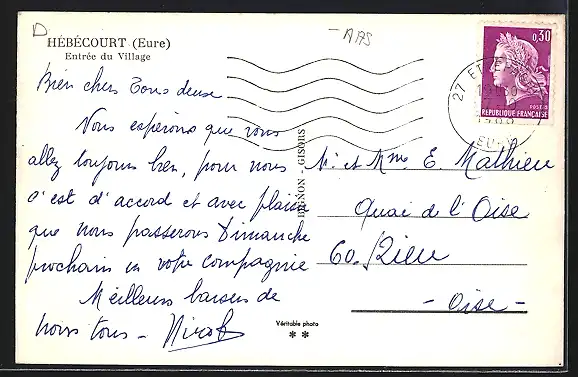 D
- A 195
HÉBÉCOURT (Eure)
Entrée du Village
Bien chers Tous deux
Vous espérons que vous
allez toujours bien, pour nous
c'est d'accord et avec plaisir
que nous passerons Dimanche
prochain en votre compagnie
Meilleurs baisers de
nous tous -
Véritable photo
BIGNON - GISORS
0,30
POSTES
REPUBLIQUE FRANÇAISE
27
EURE
Mr et Mme E. Mathieu
Quai de l'Oise
60. Rieu
- Oise -